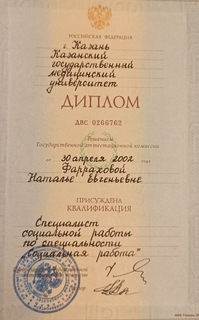 РОССИЙСКАЯ ФЕДЕРАЦИЯ
г. Казань
Казанский
государственный
медицинский
университет
ДИПЛОМ
ДВС 0266762
Решением
Государственной аттестационной комиссии
от 30 апреля 2002 года
Фарраховой
Наталье Евгеньевне
ПРИСУЖДЕНА
КВАЛИФИКАЦИЯ
Специалист
социальной работы
по специальности
"Социальная работа"